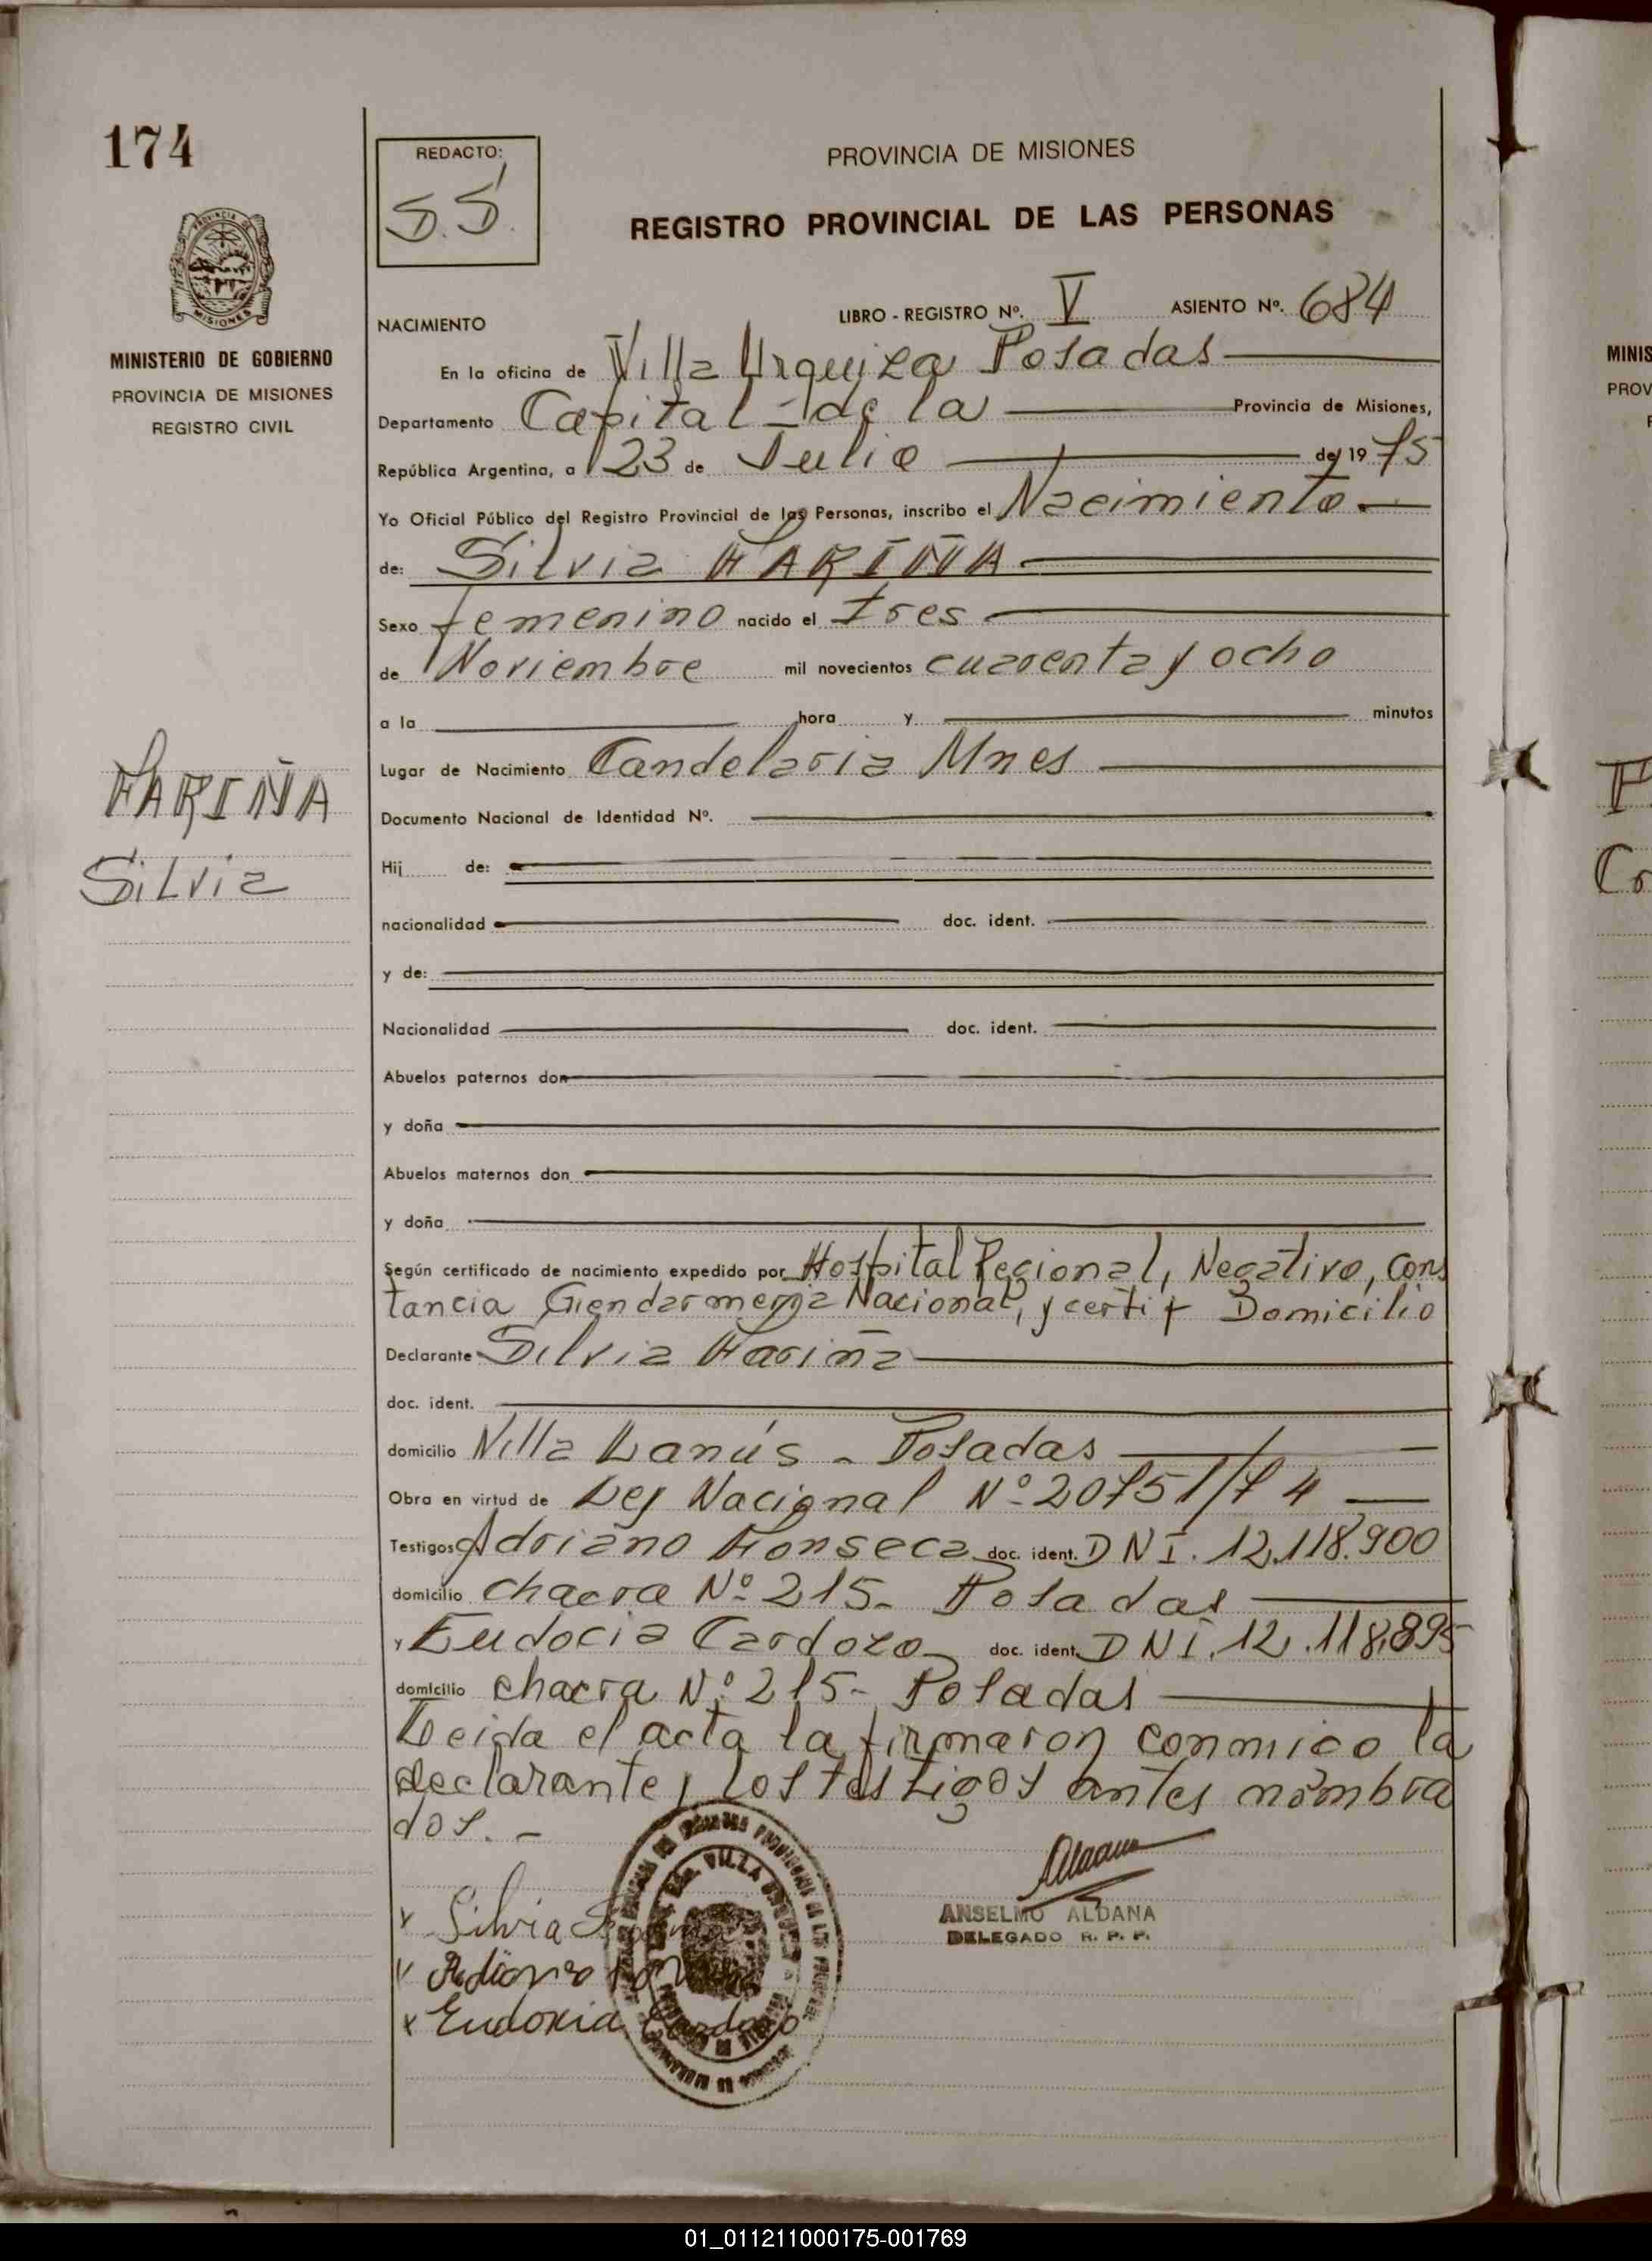 174
REDACTO:
S.S.
PROVINCIA DE MISIONES
REGISTRO PROVINCIAL DE LAS PERSONAS
MISIONES
MINISTERIO DE GOBIERNO
PROVINCIA DE MISIONES
REGISTRO CIVIL
FARIÑA
Silvia
NACIMIENTO
LIBRO - REGISTRO Nº. V ASIENTO Nº. 684
En la oficina de Villa Urquiza Posadas
Departamento Capital - de la Provincia de Misiones,
República Argentina, a 23 de Julio de 1975
Yo Oficial Público del Registro Provincial de las Personas, inscribo el Nacimiento.
de: Silvia FARIÑA
Sexo femenino nacido el tres
de Noviembre mil novecientos cuarenta y ocho
a la hora y minutos
Lugar de Nacimiento Candelaria Mnes
Documento Nacional de Identidad Nº.
Hij de:
nacionalidad doc. ident.
y de:
Nacionalidad doc. ident.
Abuelos paternos don
y doña
Abuelos maternos don
y doña
Según certificado de nacimiento expedido por Hospital Regional, Negativo, cons
tancia Gendarmeria Nacional, y certif Domicilio
Declarante Silvia Fariña
doc. ident.
domicilio Villa Lanús - Posadas
Obra en virtud de Ley Nacional Nº 20751/74
Testigos Adriano Fonseca doc. ident. DNI. 12.118.900
domicilio chacra Nº 215- Posadas
y Eudocia Cardozo doc. ident. DNI. 12.118.895
domicilio chacra Nº 215- Posadas
Leida el acta la firmaron conmigo la
declarante y los testigos antes nombra
dos. -
Silvia
Eudoxia Cardozo
VILLA
ANSELMO ALDANA
DELEGADO R. P. P.
MINIS
PROV
01_011211000175-001769